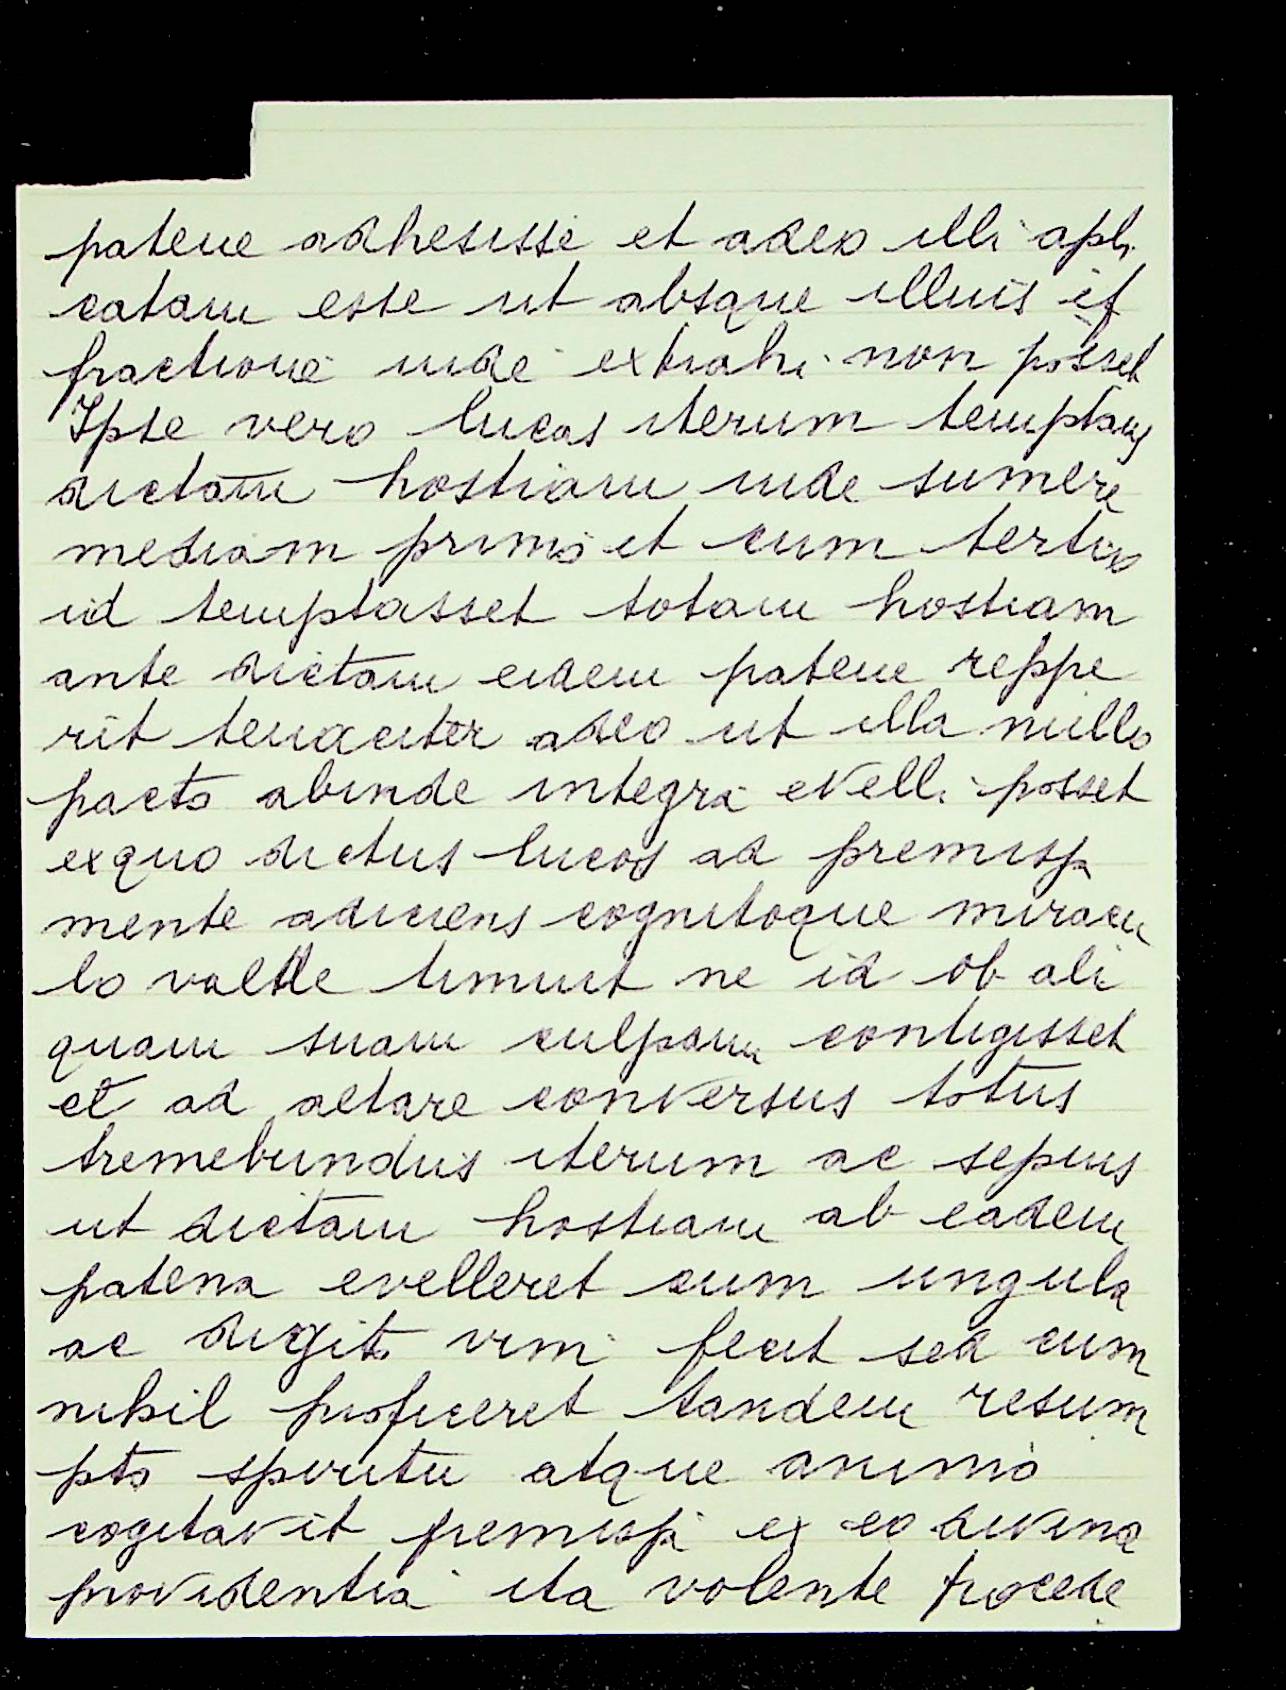 patene adhesisse et adeo illi apli
catam esse ut absque illius ef
fractione inde extrahi non posset
Ipse vero lucas iterum temptans
dictam hostiam inde sumere
mediam primo et cum tertio
id temptasset totam hostiam
ante dictam eidem patene reppe
rit tenaciter adeo ut illa nullo
pacto abinde integra evelli posset
exquo dictus lucas ad premissa
mente adiciens cognitoque miracu
lo valde timuit ne id ob ali
quam suam culpam contigisset
et ad altare conversus totus
tremebundus iterum ac sepius
ut dictam hostiam ab eadem
patena evelleret cum ungula
ac digito vim fecit sed cum
nihil proficeret tandem resum
pto spiritu atque animo
cogitavit premissa ex eo divina
providentia ita volente procede